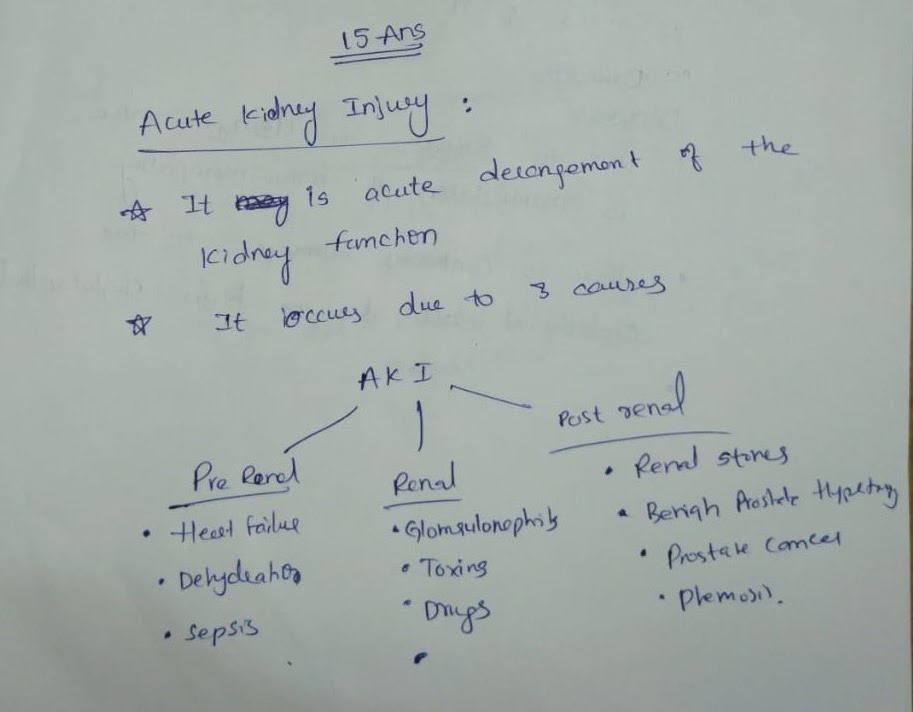 15 Ans
Acute Kidney Injury :
☆ It is acute derangement of the
kidney function
☆ It occurs due to 3 causes
AKI
Pre Renal
• Heart Failure
• Dehydration
• Sepsis
Renal
• Glomerulonephitis
• Toxins
• Drugs
•
Post renal
• Renal stones
• Benigh Prostate Hypetropy
• Prostate Cancer
• Phemosis.